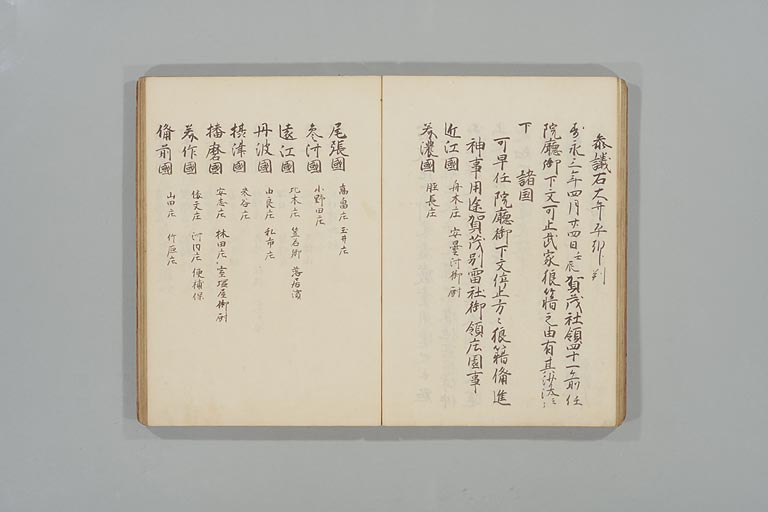 参議右大弁平卿判
寿永三年四月廿四日壬辰賀茂社領四十一ヶ所任
院廳御下文可止武家狼藉之由有其沙汰云々
下 諸国
可早任 院廳御下文停止方々狼籍備進
神事用途賀茂別雷社御領庄園事
近江國 舟木庄 安曇河御厨
美濃國 脛長庄
尾張國 高畠庄 玉井庄
參河國 小野田庄
遠江國 比木庄 笠名郷 落居濱
丹波國 由良庄 私市庄
摂津國 米谷庄
播磨國 安志庄 林田庄 室塩屋御厨
美作國 倭文庄 河内庄 便補保
備前國 山田庄 竹原庄